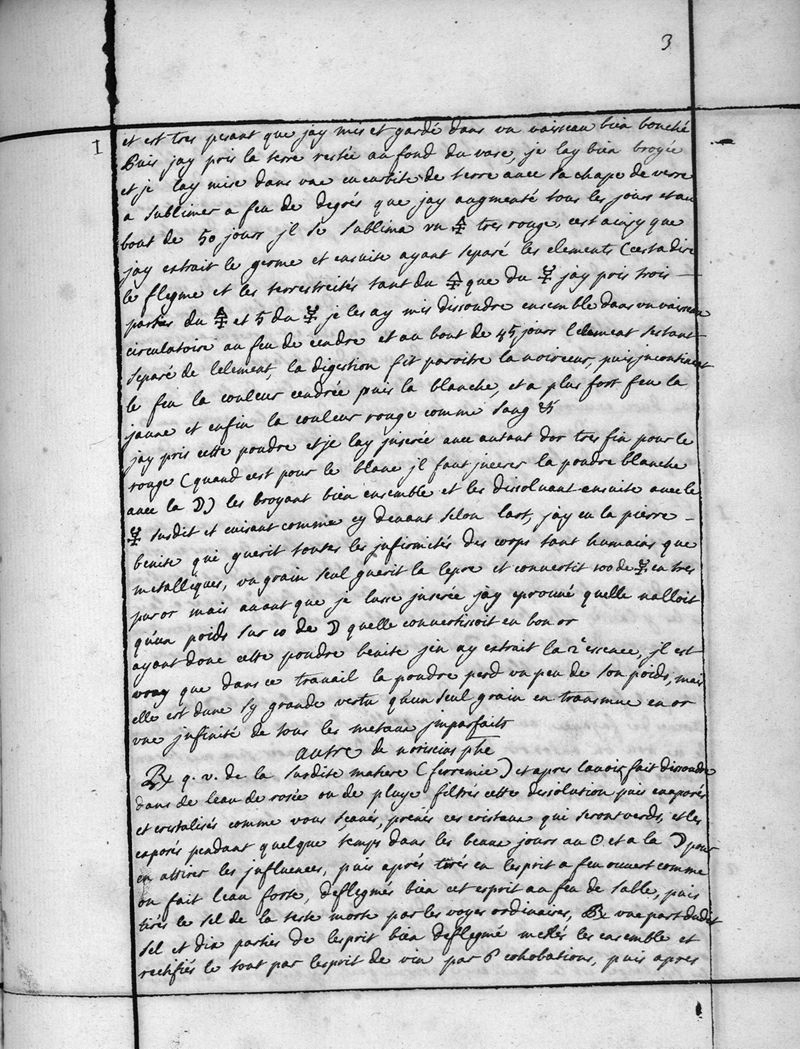 3
1
et est tres pesant que jay mis et gardé dans vn vaisseau bien bouché
Puis jay pris la terre restée au fond du vase, je lay bien broyée
et je lay mise dans vne cucurbite de terre auec sa chape de verre
a sublimer a feu de degrés que jay augmenté tous les jours et au
bout de 50 jours jl se sublima vn 🜍 tres rouge, cest ainsy que
jay extrait le germe et ensuite ayant separé les elements (cest a dire
le flegme et les terrestreités tant du 🜍 que du ☿ jay pris trois
parties du 🜍 et 5 du ☿ je les ay mis dissoudre ensemble dans vn vaisseau
circulatoire au feu de cendre et au bout de 45 jours lelement sestant
separé de lelement, la digestion fit paroitre la noirceur, puis jncontinent
le feu la couleur cendrée puis la blanche, et a plus fort feu la
jaune et enfin la couleur rouge comme sang
jay pris cette poudre et je lay jncerée auec autant dor tres fin pour le
rouge (quand cest pour le blanc jl faut jncerer la poudre blanche
auec la ☽) les broyant bien ensemble et les dissoluant ensuite auec le
☿ susdit et cuisant comme cy deuant selon lart, jay eu la pierre
benite qui guerit toutes les jnfirmités des corps tant humains que
metalliques, vn grain seul guerit la lepre et conuertit 100 de ☿ en tres
pur or mais auant que je leusse jncerée jay eprouué quelle nalloit
qu'un poids sur 10 de ☽ quelle conuertissoit en bon or
ayant donc cette poudre benite jen ay extrait la 2e essence, jl est
vray que dans ce trauail la poudre perd vn peu de son poids, mais
elle est dune sy grande vertu qu'un seul grain en transmue en or
vne jnfinité de tous les metaux jmparfaits
autre de phe
℞ q. v. de la susdite matiere () et apres lauoir fait dissoudre
dans de leau de rosée ou de pluye filtrés cette dissolution puis euaporés
et cristalisés comme vous sçaués, prenés ces cristaux qui seront verds, et les
exposés pendant quelque temps dans les beaux jours au ☉ et a la ☽ pour
en attirer les jnfluences, puis aprés tirés en lesprit a feu ouuert comme
on fait leau forte, deflegmés bien cet esprit au feu de sable, puis
tirés le sel de la teste morte par les voyes ordinaires, ℞ vne part dudit
sel et dix parties de lesprit bien deflegmé mettés les ensemble et
rectifiés le tout par lesprit de vin par 6 cohobations, puis apres